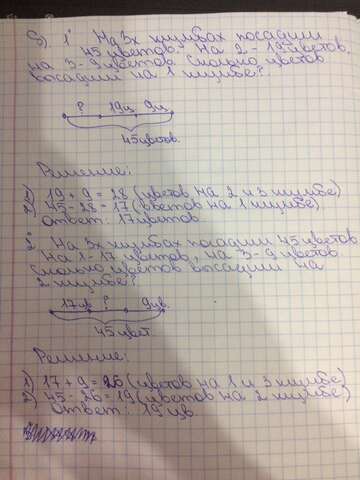 б). 1° На 3х клумбах посадили
45 цветов. На 2 - 19 цветов
на 3 - 9 цветов. Сколько цветов
высадили на 1 клумбе?.
? 19ц 9ц
45 цветов.
Решение:
1) 19 + 9 = 28 (цветов на 2 и 3 клумбе)
2) 45 - 28 = 17 (цветов на 1 клумбе)
Ответ: 17 цветов
2° На 3х клумбах посадили 45 цветов
На 1 - 17 цветов, на 3 - 9 цветов
Сколько цветов высадили на
2 клумбе?
17цв ? 9цв.
45 цвет.
Решение:
1) 17 + 9 = 26 (цветов на 1 и 3 клумбе)
2) 45 - 26 = 19 (цветов на 2 клумбе)
Ответ: 19 цв.